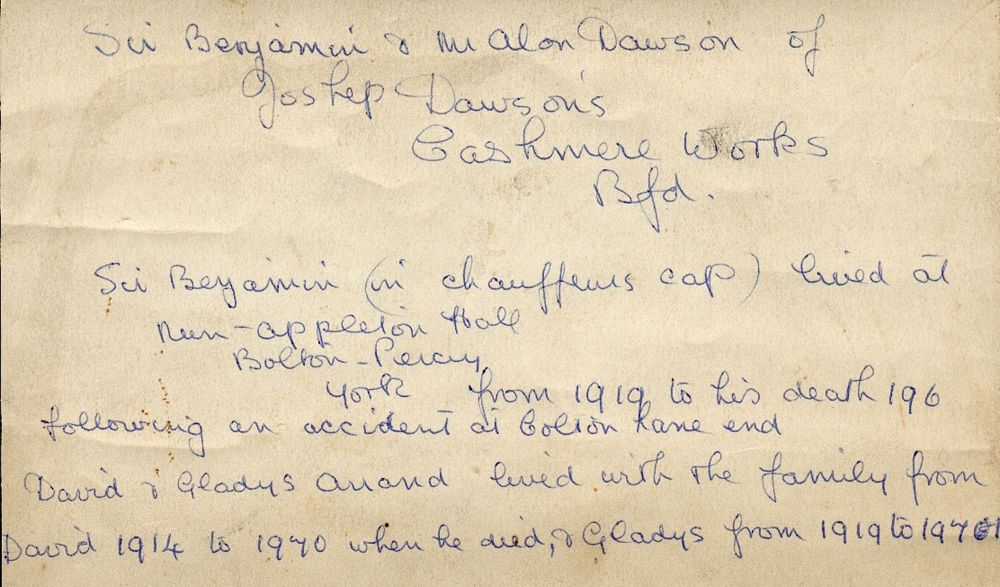 Sir Benjamin & Mr Alon Dawson of
Joshep Dawson's
Cashmere Works
Bfd.
Sir Benjamin (in chauffeurs cap) lived at
Nun-appleton Hall
Bolton-Percy
York from 1919 to his death 196
following an accident at Colton Lane end
David & Gladys Anand lived with the family from
David 1914 to 1970 when he died, & Gladys from 1919 to